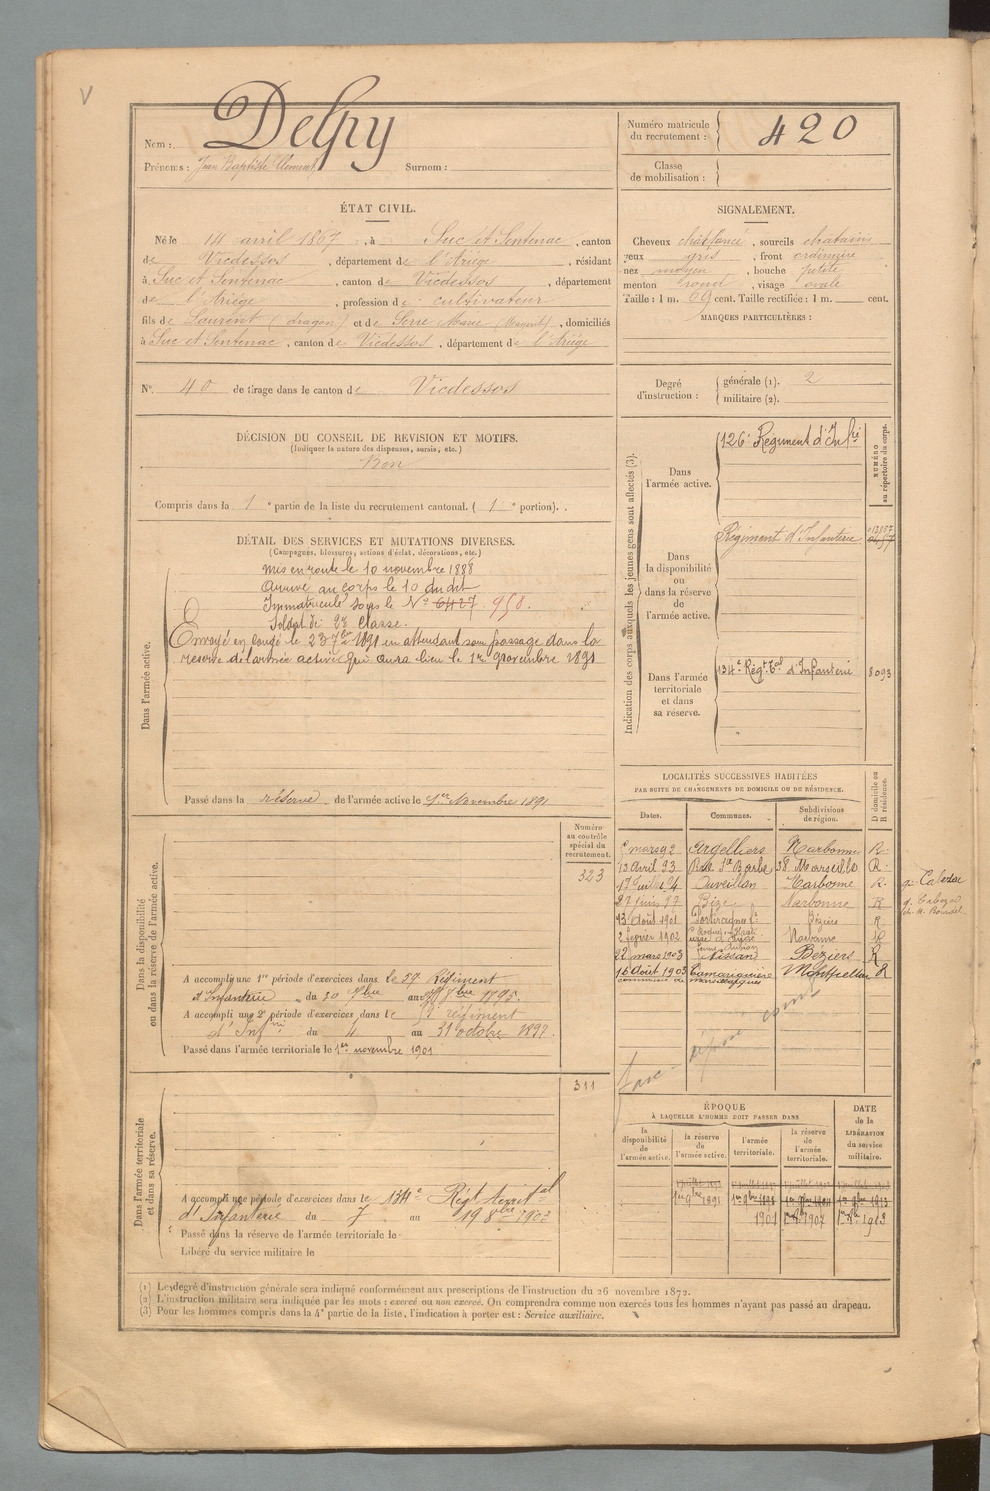 V
Nom : Delpy
Prénoms : Jean Baptiste Clément Surnom :
Numéro matricule du recrutement : 420
Classe de mobilisation :
ÉTAT CIVIL.
Né le 14 avril 1867, à Suc et Sentenac, canton
de Vicdessos, département de l'Ariège, résidant
à Suc et Sentenac, canton de Vicdessos, département
de l'Ariège, profession de cultivateur
fils de Laurent (dragon) et de Serre Marie, domiciliés
à Suc et Sentenac, canton de Vicdessos, département de l'Ariège
SIGNALEMENT.
Cheveux chat foncé, sourcils chatains
yeux gris, front ordinaire
nez moyen, bouche petite
menton rond, visage ovale
Taille : 1 m. 69 cent. Taille rectifiée : 1 m. cent.
MARQUES PARTICULIÈRES :
N° 40 de tirage dans le canton de Vicdessos
Degré d'instruction : générale (1). 2
militaire (2).
DÉCISION DU CONSEIL DE REVISION ET MOTIFS.
(Indiquer la nature des dispenses, sursis, etc.)
Bon
Compris dans la 1e partie de la liste du recrutement cantonal. (1e portion).
DÉTAIL DES SERVICES ET MUTATIONS DIVERSES.
(Campagnes, blessures, actions d'éclat, décorations, etc.)
Dans l'armée active.
Mis en route le 10 novembre 1888
Arrivé au corps le 10 du dit
Immatriculé sous le N° 6427 958.
Soldat de 2e classe.
Envoyé en congé le 23 7bre 1891 en attendant son passage dans la
réserve de l'armée active qui aura lieu le 1er novembre 1891
Passé dans la réserve de l'armée active le 1er Novembre 1891
Indication des corps auxquels les jeunes gens sont affectés (3).
NUMÉRO au répertoire du corps.
Dans l'armée active.
126e Régiment d'Infrie
Dans la disponibilité ou dans la réserve de l'armée active.
Régiment d'Infanterie
Dans l'armée territoriale et dans sa réserve.
134e Régt Tal d'Infanterie 8093
LOCALITÉS SUCCESSIVES HABITÉES
PAR SUITE DE CHANGEMENTS DE DOMICILE OU DE RÉSIDENCE.
Dates. Communes. Subdivisions de région. D domicile ou R résidence.
mars 92 Argelliers Narbonne R.
13 Avril 93 Rue Ste Barbe 38 Marseille R.
Ouveillan Narbonne R.
27 juin 97 Bize Narbonne R
13 Août 1901 Portiragnes Béziers R
2 février 1902 Narbonne R
22 mars 1903 Nissan Béziers R
16 Août 1903 Camariguière Montpellier R
commune de
Dans la disponibilité ou dans la réserve de l'armée active.
Numéro au contrôle spécial du recrutement.
323
A accompli une 1re période d'exercices dans le 59e Régiment
d'Infanterie du 30 7bre au 8bre 1895.
A accompli une 2e période d'exercices dans le régiment
d'Infrie du 4 au 31 octobre 1897.
Passé dans l'armée territoriale le 1er novembre 1901
Dans l'armée territoriale et dans sa réserve.
311
A accompli une période d'exercices dans le 134e Régt territal
d'Infanterie du 7 au 19 8bre 1903
Passé dans la réserve de l'armée territoriale le
Libéré du service militaire le
ÉPOQUE
À LAQUELLE L'HOMME DOIT PASSER DANS
la disponibilité de l'armée active. la réserve de l'armée active. l'armée territoriale. la réserve de l'armée territoriale.
DATE de la LIBÉRATION du service militaire.
1er 9bre 1891 1er 9bre 1898 1er 9bre 1913
1901 1er 9bre 1907 1er 9bre 1913
(1) Le degré d'instruction générale sera indiqué conformément aux prescriptions de l'instruction du 26 novembre 1872.
(2) L'instruction militaire sera indiquée par les mots : exercé ou non exercé. On comprendra comme non exercés tous les hommes n'ayant pas passé au drapeau.
(3) Pour les hommes compris dans la 4e partie de la liste, l'indication à porter est : Service auxiliaire.